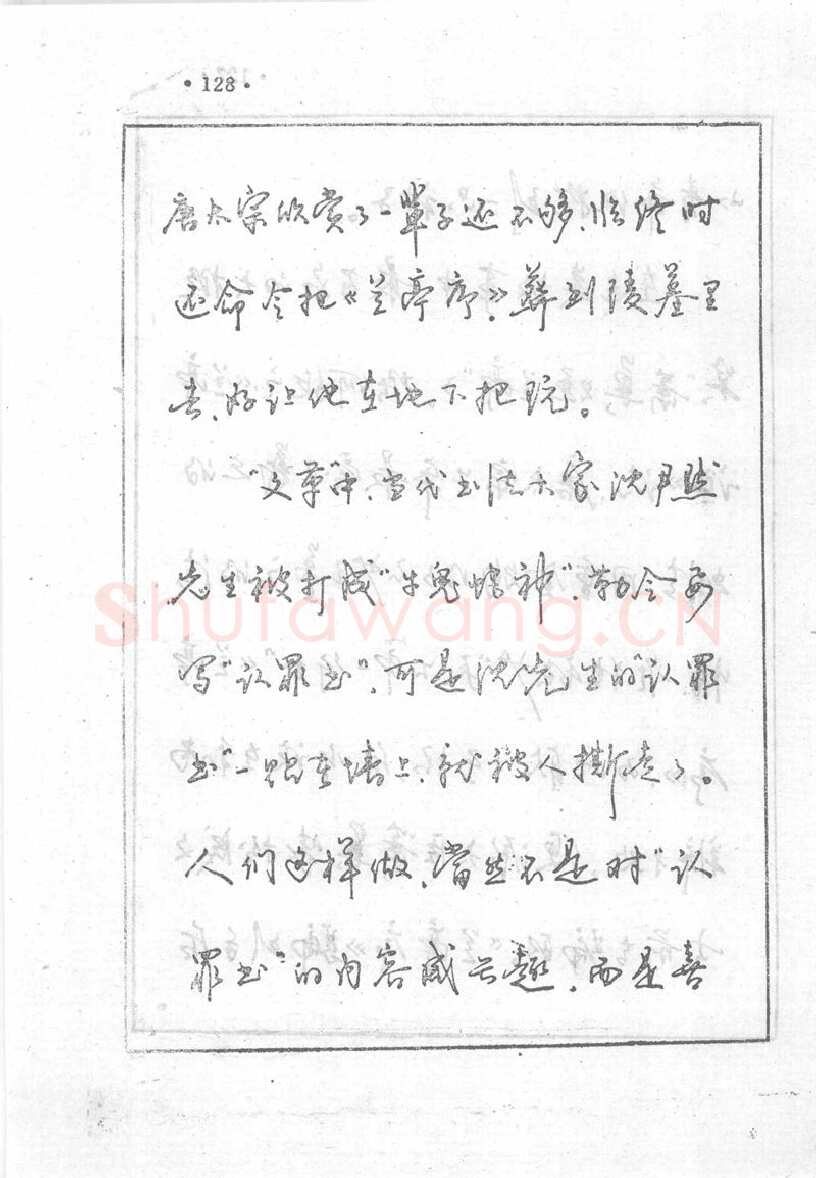 ·128·
唐太宗欣赏了一辈子还不够，临终时
还命令把《兰亭序》葬到陵墓里
去，好让他在地下把玩。
“文革”中，当代书法大家沈尹默
先生被打成“牛鬼蛇神”，勒令要
写“认罪书”，可是沈先生的“认罪
书”一贴在墙上，就被人撕走了。
人们这样做，当然不是对“认
罪书”的内容感兴趣，而是喜
Shufawang.CN